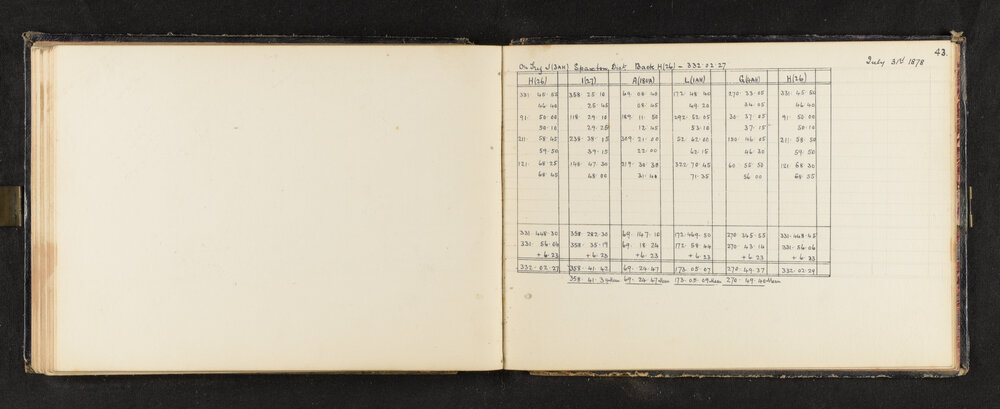 43.
July 31st 1878
On Trig J(3AH) Spaxton Dist. Back H(26) - 332·02·27
H(26) I(27) A(180A) L(1AH) G(2AH) H(26)
331·45·55 358·25·10 69·08·40 172·48·40 270·33·05 331·45·50
46·40 25·45 08·45 49·20 34·05 46·40
91·50·00 118·29·10 189·11·50 292·52·05 30·37·05 91·50·00
50·10 29·25 12·45 53·10 37·15 50·10
211·58·45 238·38·15 309·21·00 52·62·00 150·46·05 211·58·50
59·50 39·15 22·00 62·15 46·30 59·50
121·68·25 148·47·30 219·30·30 322·70·45 60·55·50 121·68·30
68·45 48·00 31·40 71·35 56·00 68·55
331·448·30 358·282·30 69·147·10 172·469·50 270·345·55 331·448·45
331·56·04 358·35·19 69·18·24 172·58·44 270·43·14 331·56·06
+6·23 +6·23 +6·23 +6·23 +6·23 +6·23
332·02·27 358·41·42 69·24·47 173·05·07 270·49·37 332·02·29
358·41·39 Mean 69·24·47 Mean 173·05·09 Mean 270·49·40 Mean